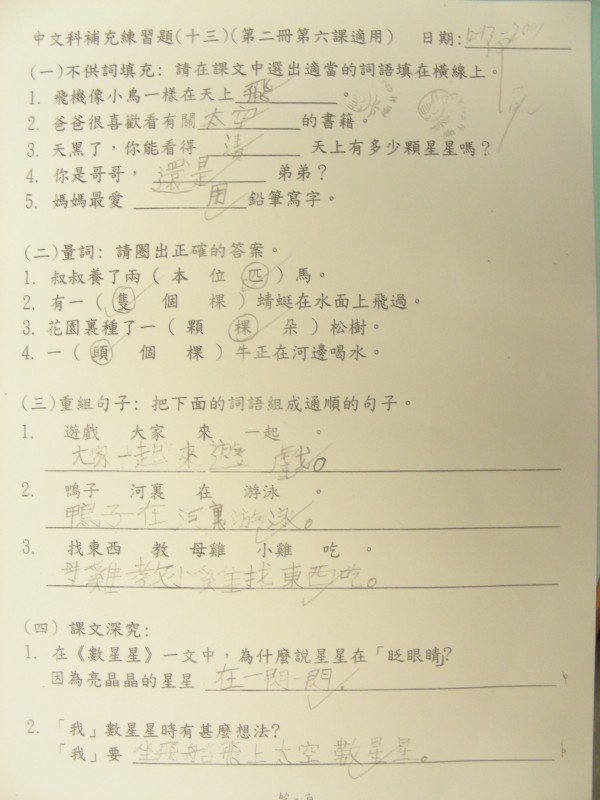 中文科補充練習題(十三)(第二冊第六課適用) 日期:5-13-2011
(一)不供詞填充: 請在課文中選出適當的詞語填在橫線上。
1. 飛機像小鳥一樣在天上 飛 。
2. 爸爸很喜歡看有關 太空 的書籍。
3. 天黑了,你能看得 清 天上有多少顆星星嗎?
4. 你是哥哥, 還是 弟弟?
5. 媽媽最愛 用 鉛筆寫字。
(二)量詞: 請圈出正確的答案。
1. 叔叔養了兩( 本 位 匹 )馬。
2. 有一( 隻 個 棵 )蜻蜓在水面上飛過。
3. 花園裏種了一( 顆 棵 朵 )松樹。
4. 一( 頭 個 棵 )牛正在河邊喝水。
(三)重組句子: 把下面的詞語組成通順的句子。
1. 遊戲 大家 來 一起 。
大家一起來遊戲。
2. 鴨子 河裏 在 游泳 。
鴨子在河裏游泳。
3. 找東西 教 母雞 小雞 吃 。
母雞教小雞找東西吃。
(四) 課文深究:
1. 在《數星星》一文中,為什麼說星星在「眨眼睛」?
因為亮晶晶的星星 在一閃一閃。
2. 「我」數星星時有甚麼想法?
「我」要 坐飛船飛上太空數星星。